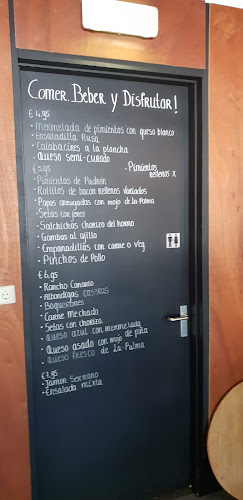 Comer, Beber y Disfrutar!
€ 4.95
- Mermelada de pimientos con queso blanco
- Ensaladilla Rusa
- Calabacines a la plancha
- Queso semi-curado
€ 5.95
- Pimientos rellenos x
- Pimientos de Padrón
- Rollitos de bacon rellenos variados
- Papas arrugadas con mojo de la Palma
- Setas con jerez
- Salchichas chorizo del horno
- Gambas al ajillo
- Empanadillas con carne o veg
- Pinchos de Pollo
€ 6.95
- Rancho Canario
- Albondigas caseras
- Boquerones
- Carne Mechada
- Setas con chorizo
- Queso azul con mermelada
- Queso asado con mojo de piña
- Queso fresco de La Palma
€ 7.95
- Jamon Serrano
- Ensalada mixta